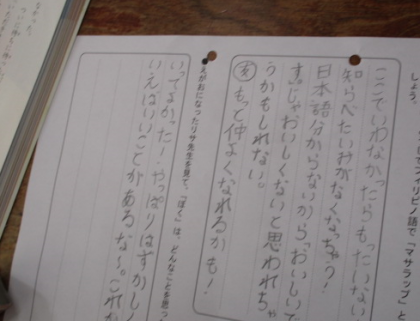 しょう。
フィリピノ語で「マサラップ」と
ここでいわなかったらもったいない
知らべたいみがなくなっちゃう!
日本語分からないから、"おいしい"で
す。じゃおいしくないと思われちゃ
うかもしれない。
友 もっと仲よくなれるかも!
●えがおになったリサ先生を見て、「ぼく」は、どんなことを思っ
いってよかった!やっぱりはずかしく
いえばいいことがあるな〜。これか